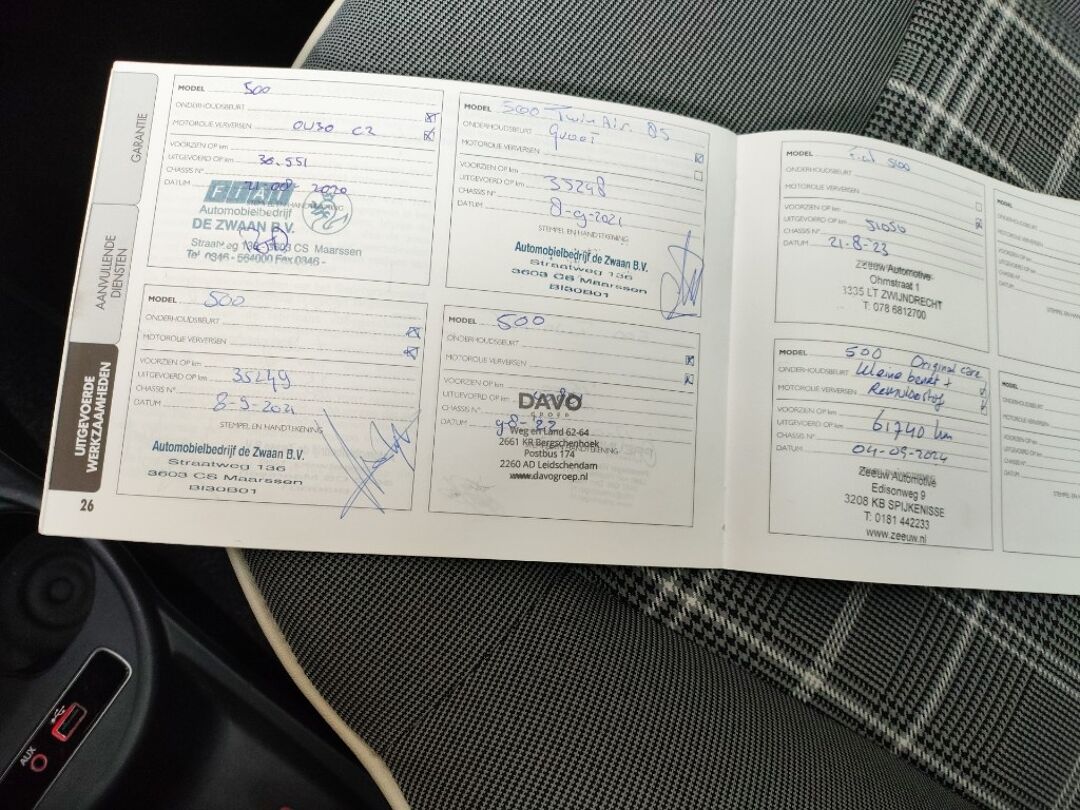 GARANTIE
AANVULLENDE
DIENSTEN
UITGEVOERDE
WERKZAAMHEDEN
26
MODEL 500
ONDERHOUDSBEURT
MOTOROLIE VERVERSEN 0W30 C2
VOORZIEN OP km
UITGEVOERD OP km 30.551
CHASSIS N°
DATUM 21-08-2020
FIAT
Automobielbedrijf
DE ZWAAN B.V.
Straatweg 136 3603 CS Maarssen
Tel. 0346 - 564000 Fax 0346 -
MODEL 500
ONDERHOUDSBEURT
MOTOROLIE VERVERSEN
VOORZIEN OP km
UITGEVOERD OP km 35249
CHASSIS N°
DATUM 8-9-2021
STEMPEL EN HANDTEKENING
Automobielbedrijf de Zwaan B.V.
Straatweg 136
3603 CS Maarssen
BI30B01
MODEL 500 TwinAir 85
ONDERHOUDSBEURT groot
MOTOROLIE VERVERSEN
VOORZIEN OP km
UITGEVOERD OP km 35248
CHASSIS N°
DATUM 8-09-2021
STEMPEL EN HANDTEKENING
Automobielbedrijf de Zwaan B.V.
Straatweg 136
3603 CS Maarssen
BI30B01
MODEL 500
ONDERHOUDSBEURT
MOTOROLIE VERVERSEN
VOORZIEN OP km
UITGEVOERD OP km
CHASSIS N°
DATUM
DAVO
GROEP
Weg en Land 62-64
2661 KR Bergschenhoek
Postbus 174
2260 AD Leidschendam
www.davogroep.nl
MODEL Fiat 500
ONDERHOUDSBEURT
MOTOROLIE VERVERSEN
VOORZIEN OP km
UITGEVOERD OP km 51050
CHASSIS N°
DATUM 21-8-23
Zeeuw Automotive
Ohmstraat 1
3335 LT ZWIJNDRECHT
T: 078 6812700
MODEL 500 Original care
ONDERHOUDSBEURT kleine beurt +
MOTOROLIE VERVERSEN Remvloeistof
VOORZIEN OP km
UITGEVOERD OP km 61740 km
CHASSIS N°
DATUM 04-09-2024
Zeeuw Automotive
Edisonweg 9
3208 KB SPIJKENISSE
T: 0181 442233
www.zeeuw.nl
MODEL
MODEL
AUX